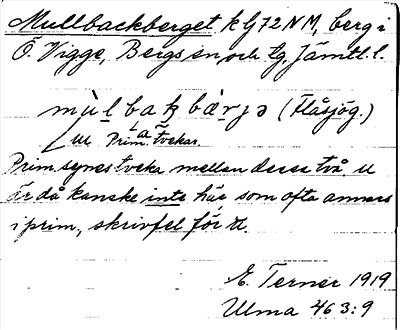 Mullbackberget k Ij 72 NM, berg i
Ö. Vigge, Bergs sn, och tg. Jämtl. l.
mùl bak bær̨jə (Flåsjög.)
u Prim. tvekar.
Prim. synes tveka mellan dessa två u
är då kanske inte här som ofta annars
i prim, skrivfel för
E. Terner 1919
Ulma 463:9